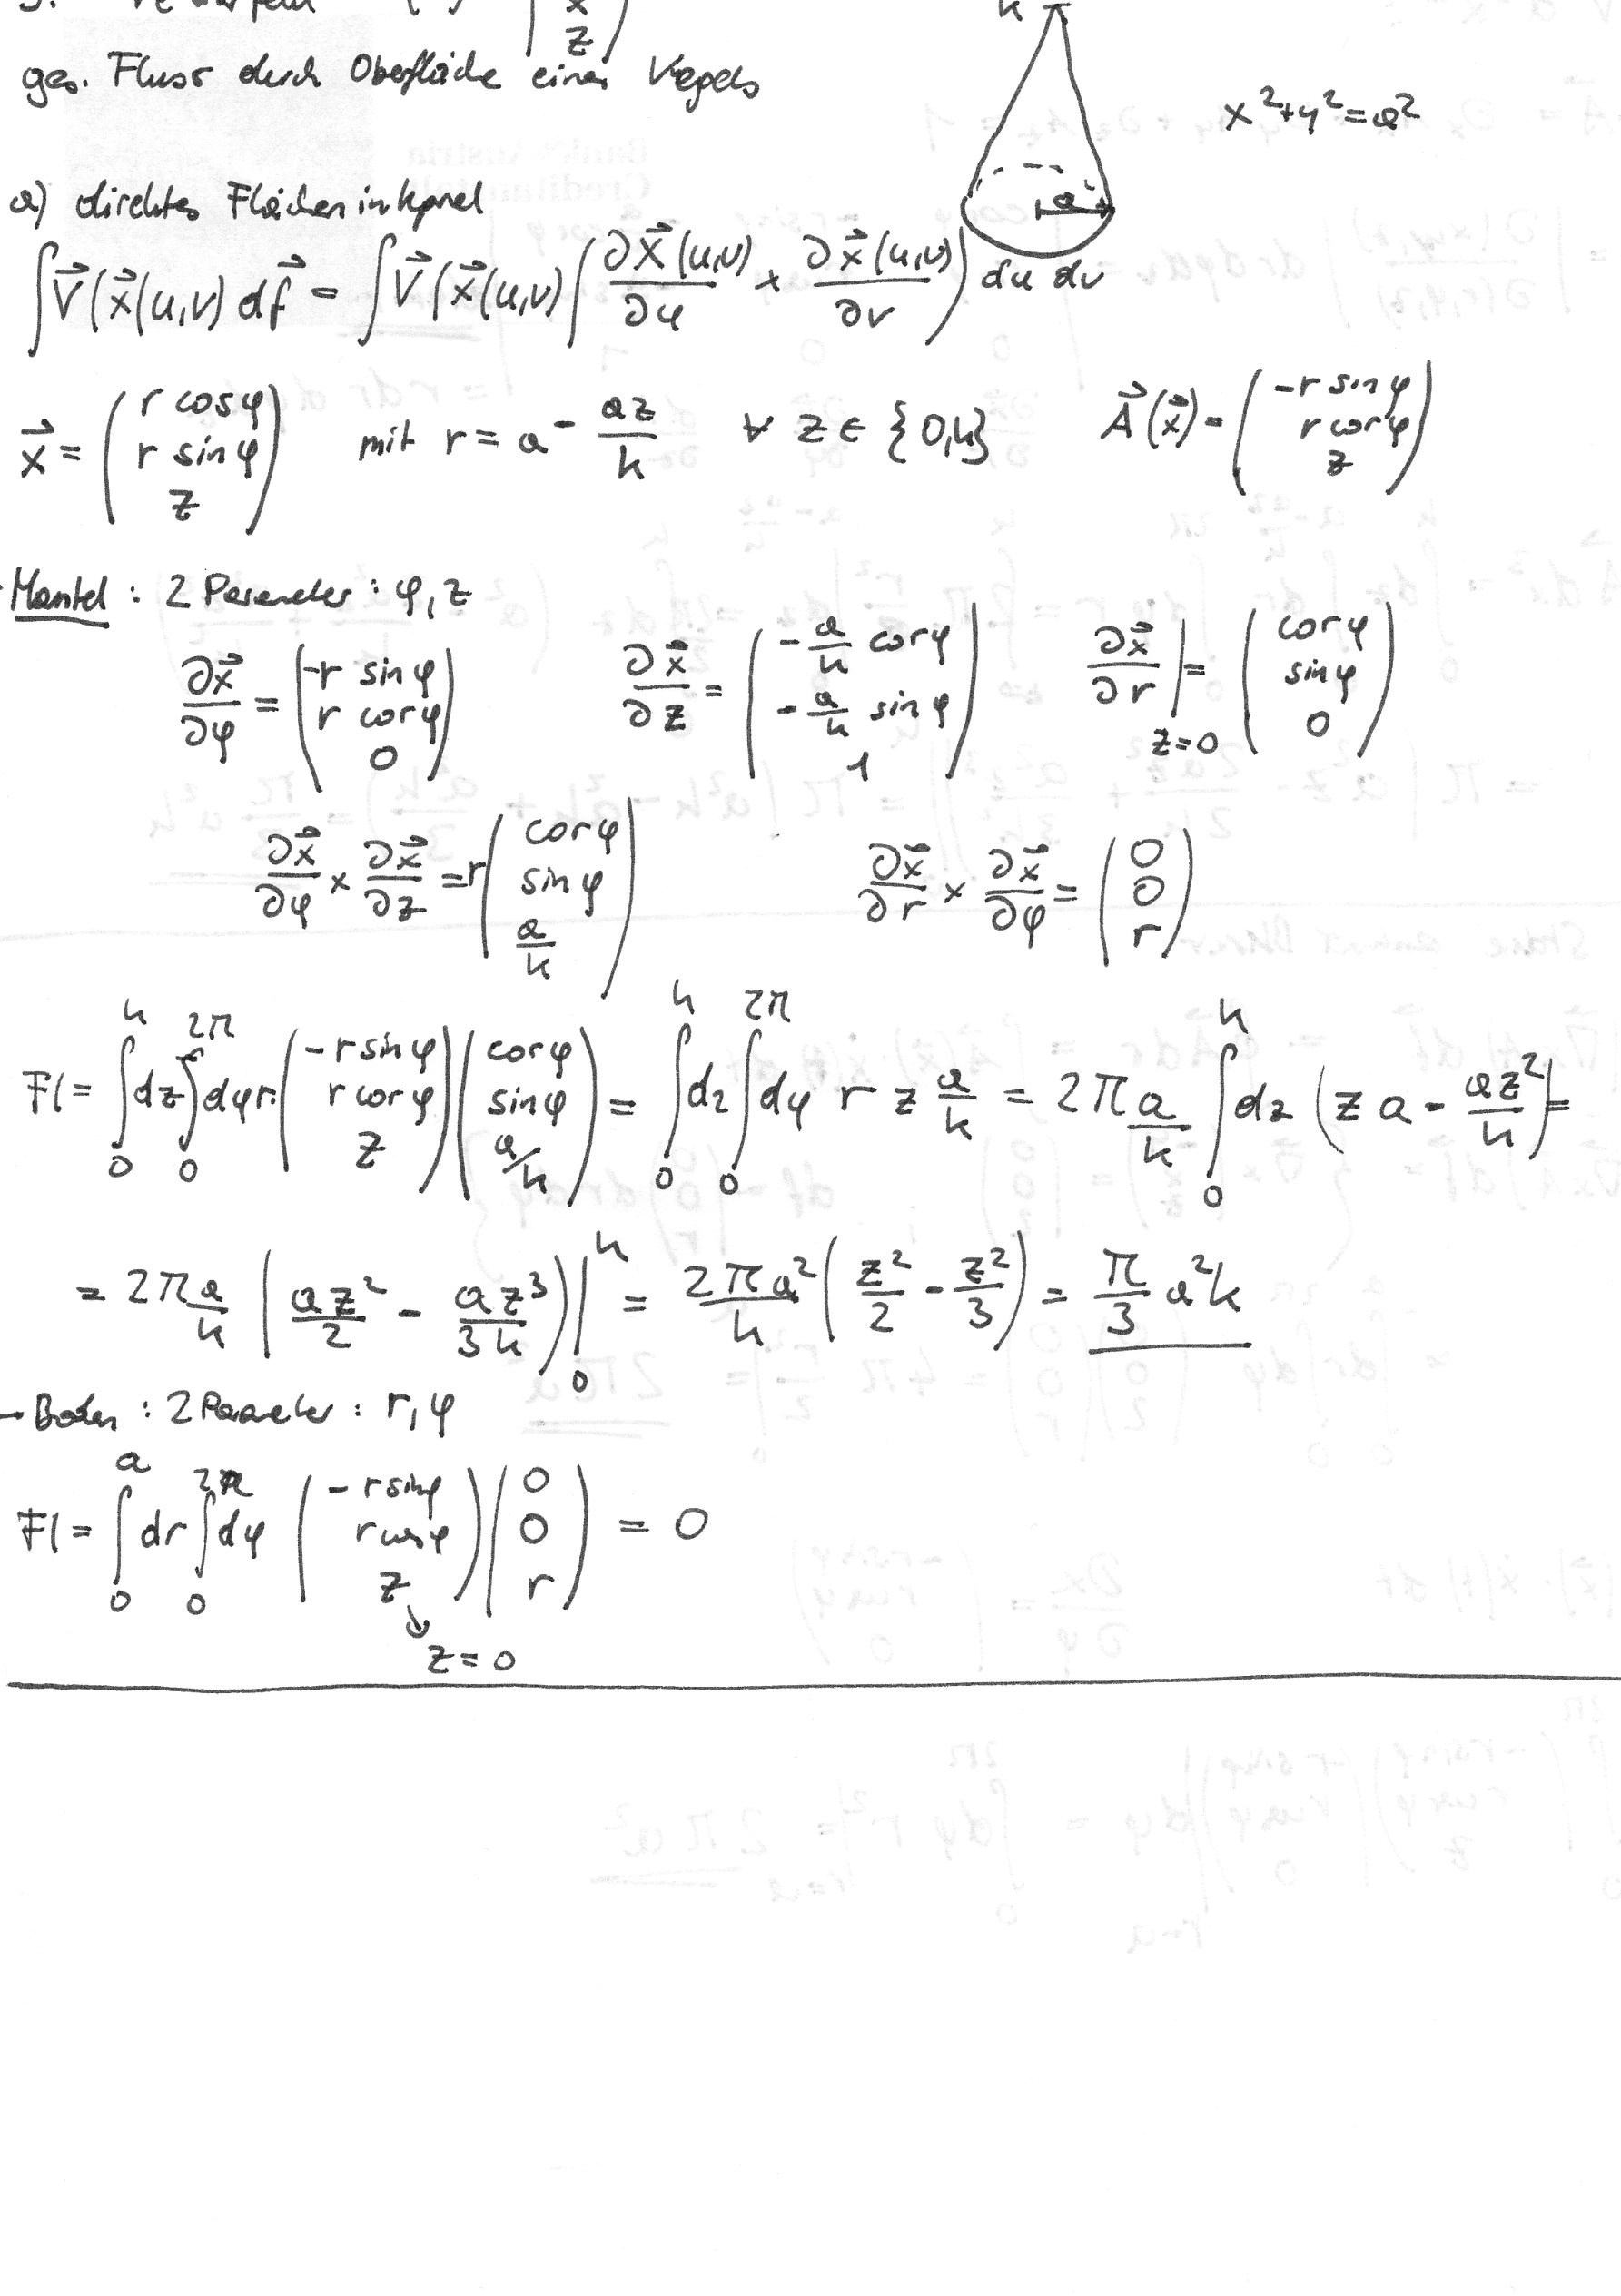 x
z
h
ges. Fluss durch Oberfläche eines Kegels
x² + y² = a²
a) direktes Flächenintegral
a
∫ V⃗(x⃗(u,v) df⃗ = ∫ V⃗(x⃗(u,v) (∂x⃗(u,v)/∂u × ∂x⃗(u,v)/∂v) du dv
x⃗ = (r cosφ, r sinφ, z) mit r = a - az/h ∀ z ∈ {0,h} A⃗(x⃗) = (-r sinφ, r cosφ, z)
Mantel : 2 Parameter : φ, z
∂x⃗/∂φ = (-r sinφ, r cosφ, 0) ∂x⃗/∂z = (-a/h cosφ, -a/h sinφ, 1) ∂x⃗/∂r |z=0 = (cosφ, sinφ, 0)
∂x⃗/∂φ × ∂x⃗/∂z = r (cosφ, sinφ, a/h) ∂x⃗/∂r × ∂x⃗/∂φ = (0, 0, r)
Fl = ∫₀ʰ dz ∫₀²π dφ r · (-r sinφ, r cosφ, z) (cosφ, sinφ, a/h) = ∫₀ʰ dz ∫₀²π dφ r z a/h = 2π a/h ∫₀ʰ dz (z a - az²/h) =
= 2π a/h (az²/2 - az³/3h) |₀ʰ = 2πa²/h (z²/2 - z²/3) = π/3 a²h
→ Boden : 2 Parameter : r, φ
Fl = ∫₀ᵃ dr ∫₀²π dφ (-r sinφ, r cosφ, z) (0, 0, r) = 0
↘ z = 0